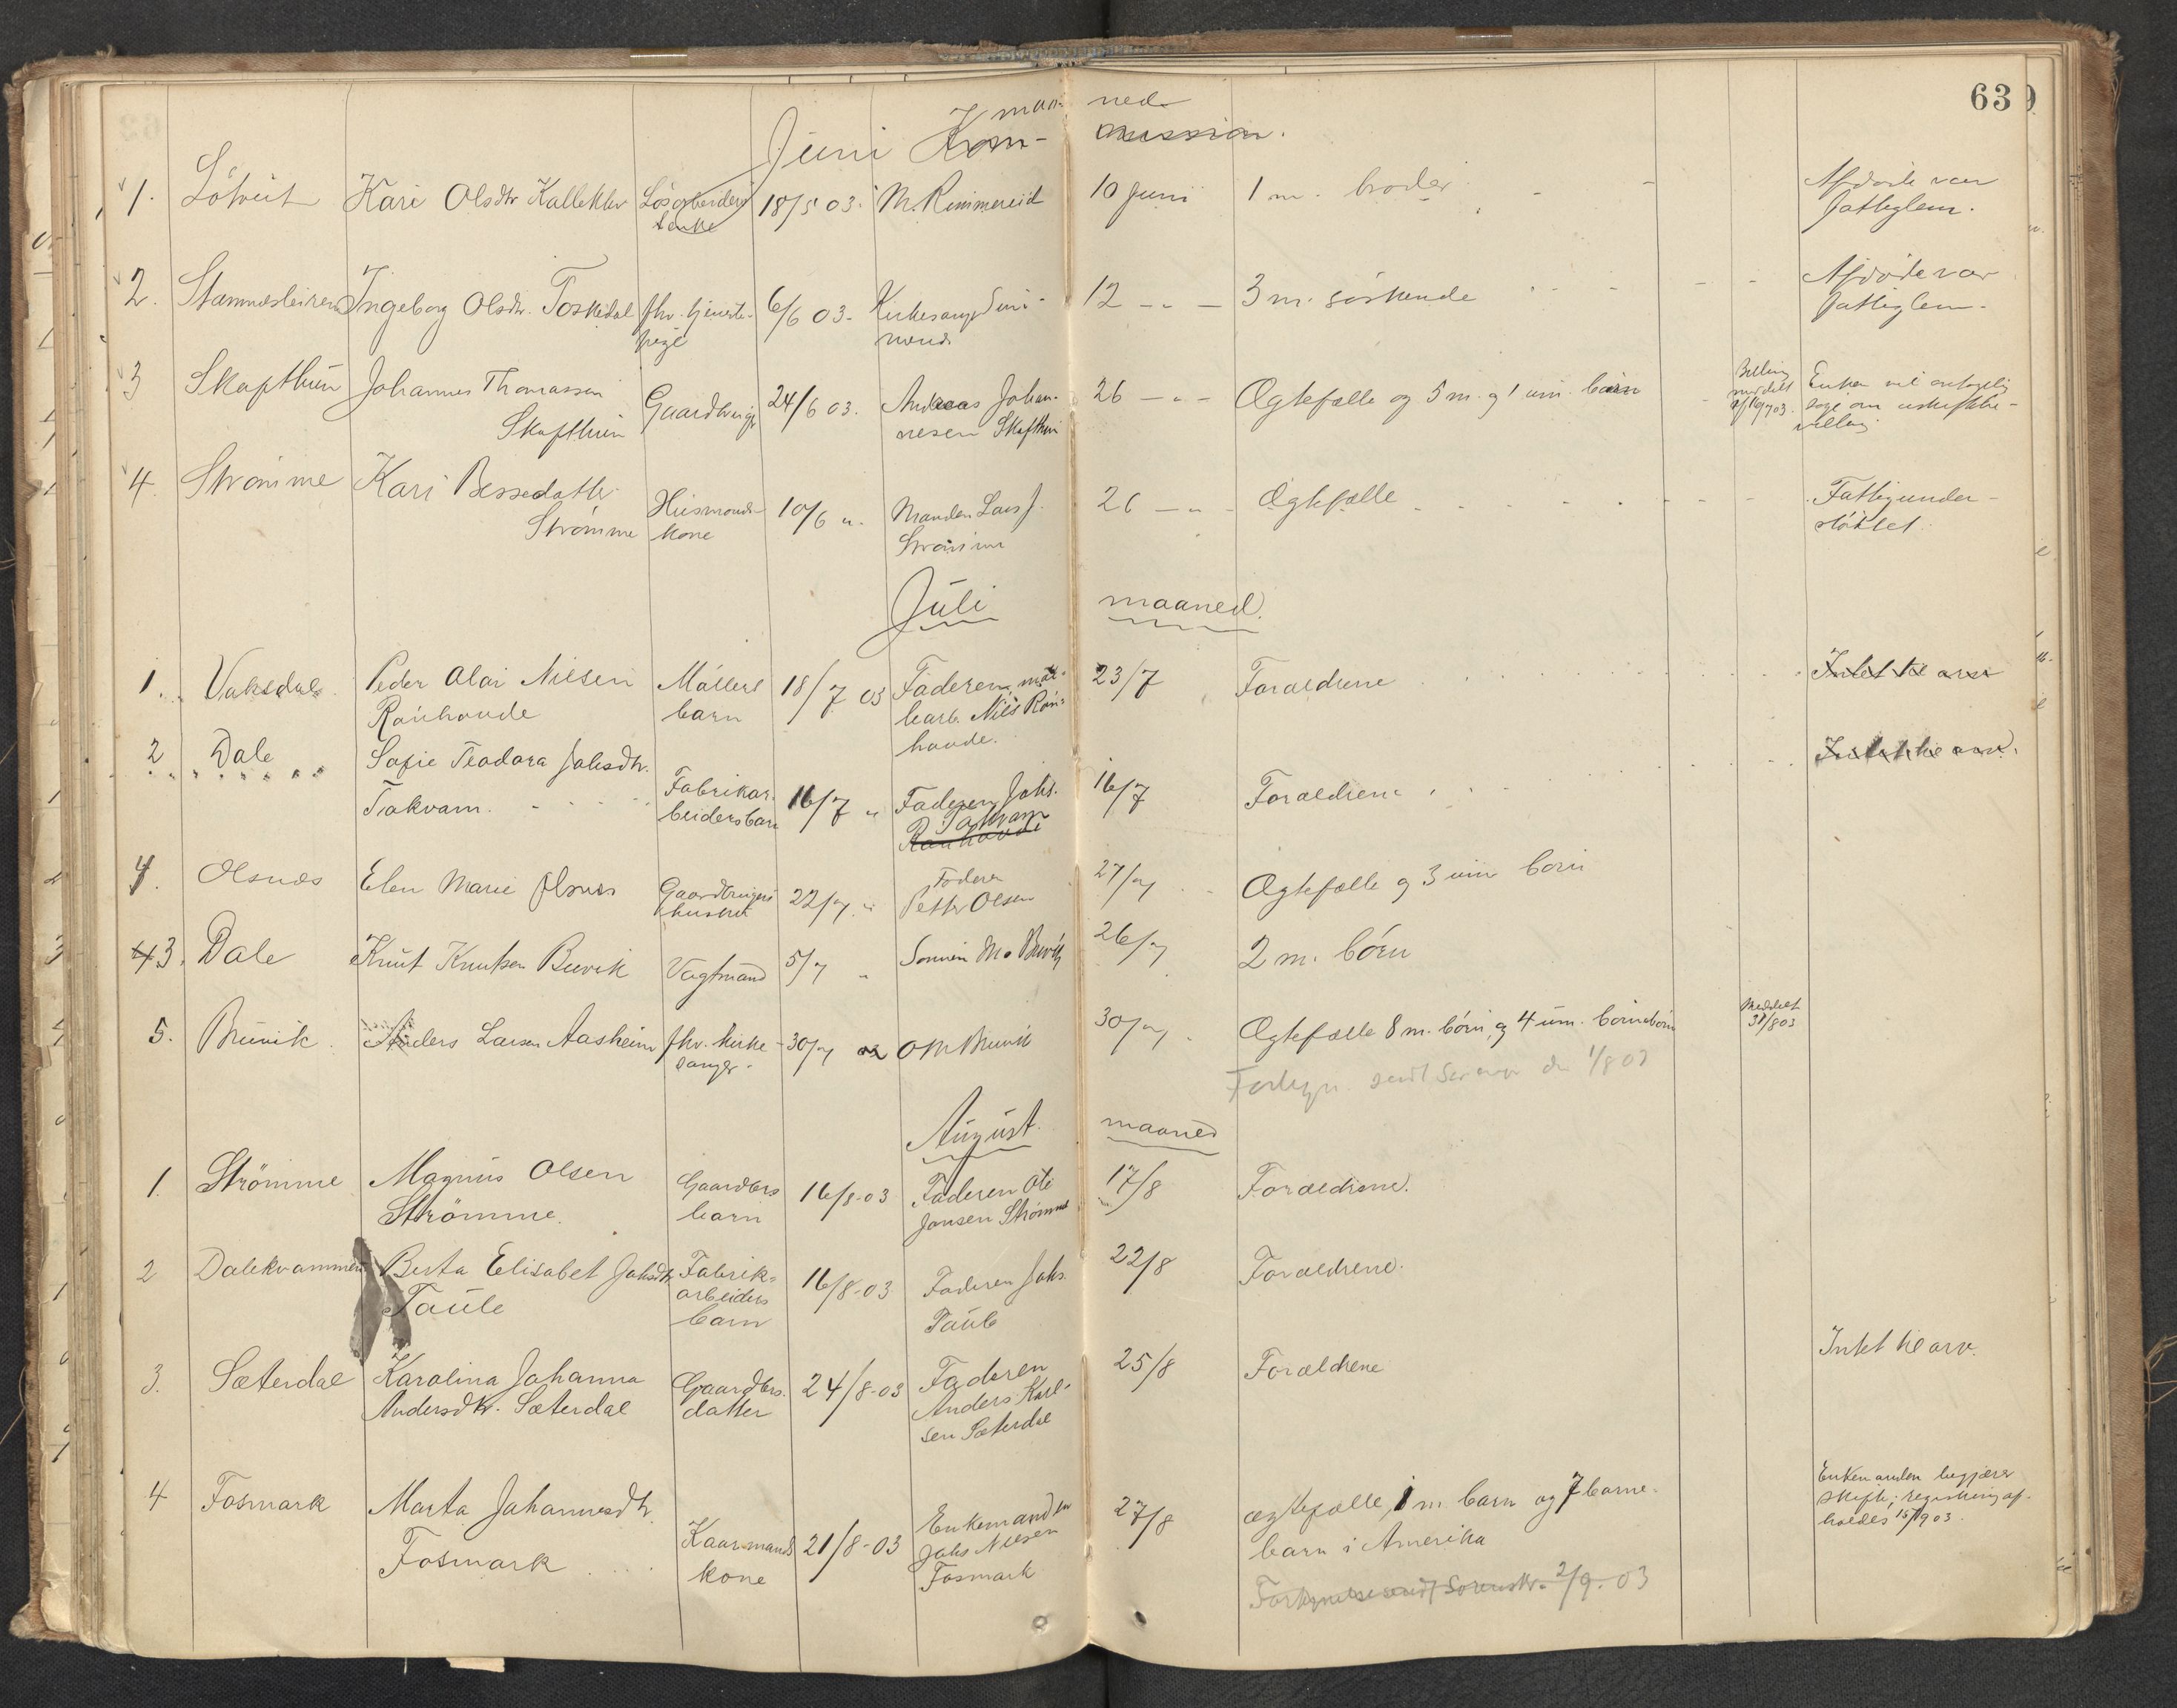 63
Juni maaned
Kommission.
1. Lötveit Kari Olsdtr Kalleklev Lösarbeiders enke 18/5 03. M. Rimmereid 10 Juni 1 m. broder Afdöde var fattiglem.
2. Stamnesleiren Ingeborg Olsdtr. Toskedal fhv. tjeneste-
pige 6/6 03. Kirkesanger 12 - " - 3 m. söskende Afdöde var
fattiglem.
3 Skafthun Johannes Thomassen
Skafthun Gaardbruger 24/6 03. Andreas Johan-
nesen Skafthun 26 - " - Ægtefælle og 5 m. og 1 um. börn Enken vil
4. Strömme Kari Bessedatter
Strömme Husmands-
kone 10/6 " Manden Lars J.
Strömme 26 - " - Ægtefælle Fattigunder-
støttet.
Juli maaned.
1. Vaksdal Peder Olai Nilsen
Rauhovde Möllerarb.
barn 18/7 03 Faderen, möl-
learb. Nils Rau-
hovde. 23/7 Forældrene Intet til arv
2 Dale Sofie Teodora Johsdtr.
Takvam. Fabrikar-
beidersbarn 16/7 " Faderen Johs.
Takvam
Rauhovde 16/7 Forældrene Intet til arv.
4. Olsnes Elen Marie Olsnes Gaardbrugers
hustru 22/7 " Faderen
Petter Olsen 27/7 Ægtefælle og 3 um börn
43. Dale Knut Knutsen Buvik Vagtmand 5/7 " Sönnen Buvik 26/7 2 m. börn
5. Bruvik Anders Larsen Aasheim fhv. kirke-
sanger. 30/7 O M Bruvik 30/7 Ægtefælle 8 m. börn, og 4 um. börnebörn Meddelt
31/8 03
1/8 03
August. maaned
1. Strömme Magnus Olsen
Strömme. Gaardbrs
barn 16/8-03 Faderen Ole
Jansen Strömme 17/8 Forældrene.
2 Dalekvammen Berta Elisabet Johsdtr
Taule Fabrik-
arbeiders
barn 16/8-03 Faderen Johs.
Taule 22/8 Forældrene.
3. Sæterdal Karolina Johanna
Andersdtr. Sæterdal Gaardbrs.
datter 24/8-03 Faderen
Anders Karl-
sen Sæterdal 25/8 Forældrene Intet til arv.
4 Fosmark Marta Johannesdtr.
Fosmark Kaarmands
kone 21/8-03 Enkemanden
Johs Nilsen
Fosmark 27/8 ægtefælle, 1 m. barn og 7 barne-
barn i Amerika Enkemanden begjærer
skifte; registrering af-
holdes 15/9 03.
Forkyndelse sendt Sorenskr. 2/9. 03